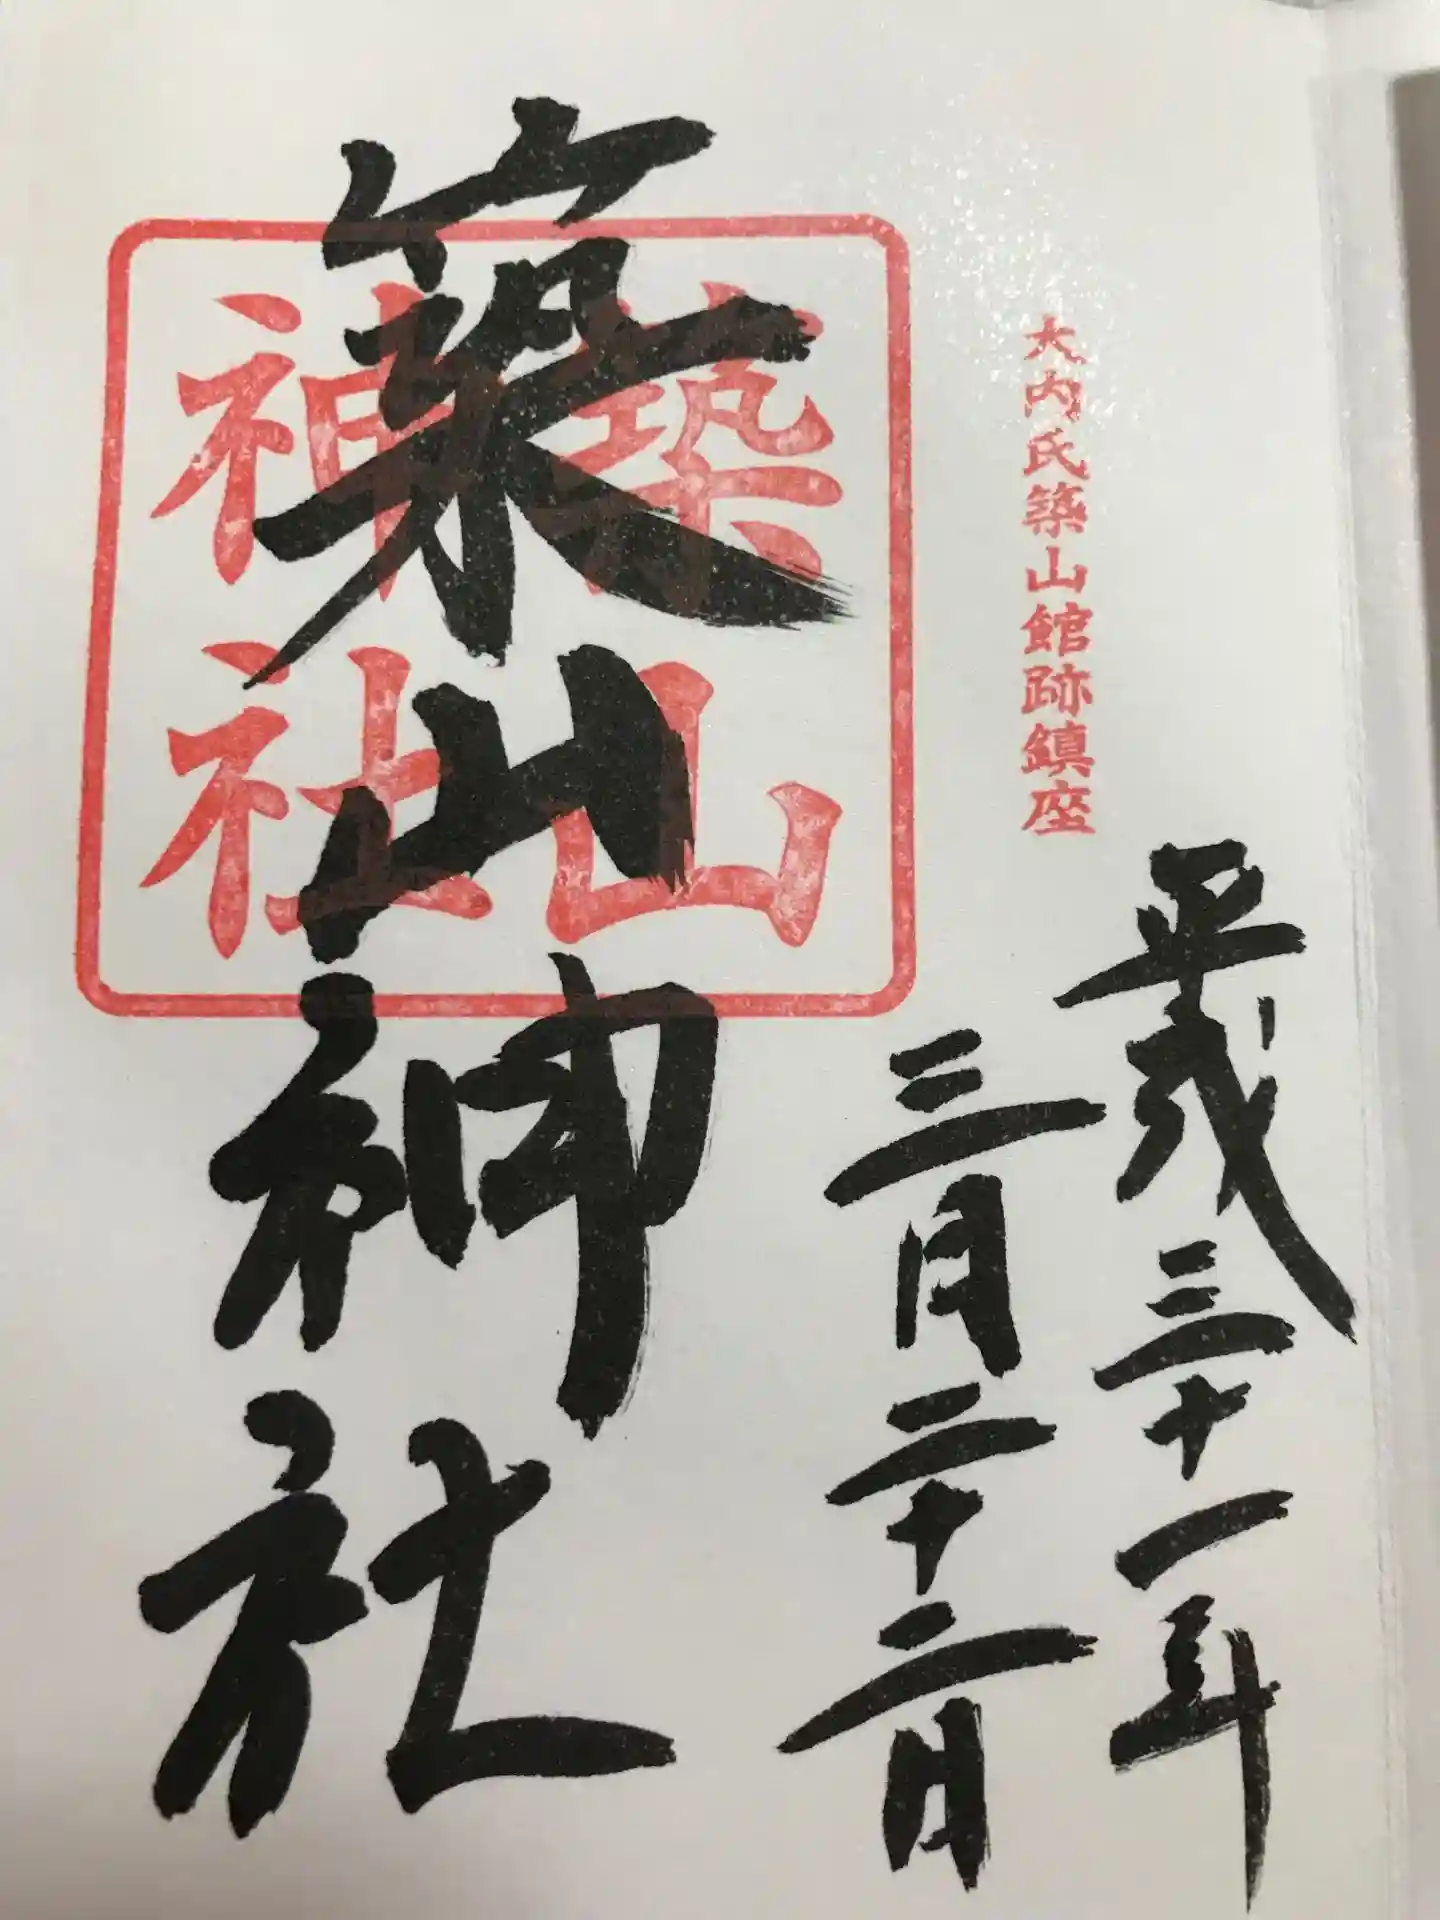 平成三十一年
三月二十二日
大内氏築山館跡鎮座
築山神社
築山
神社